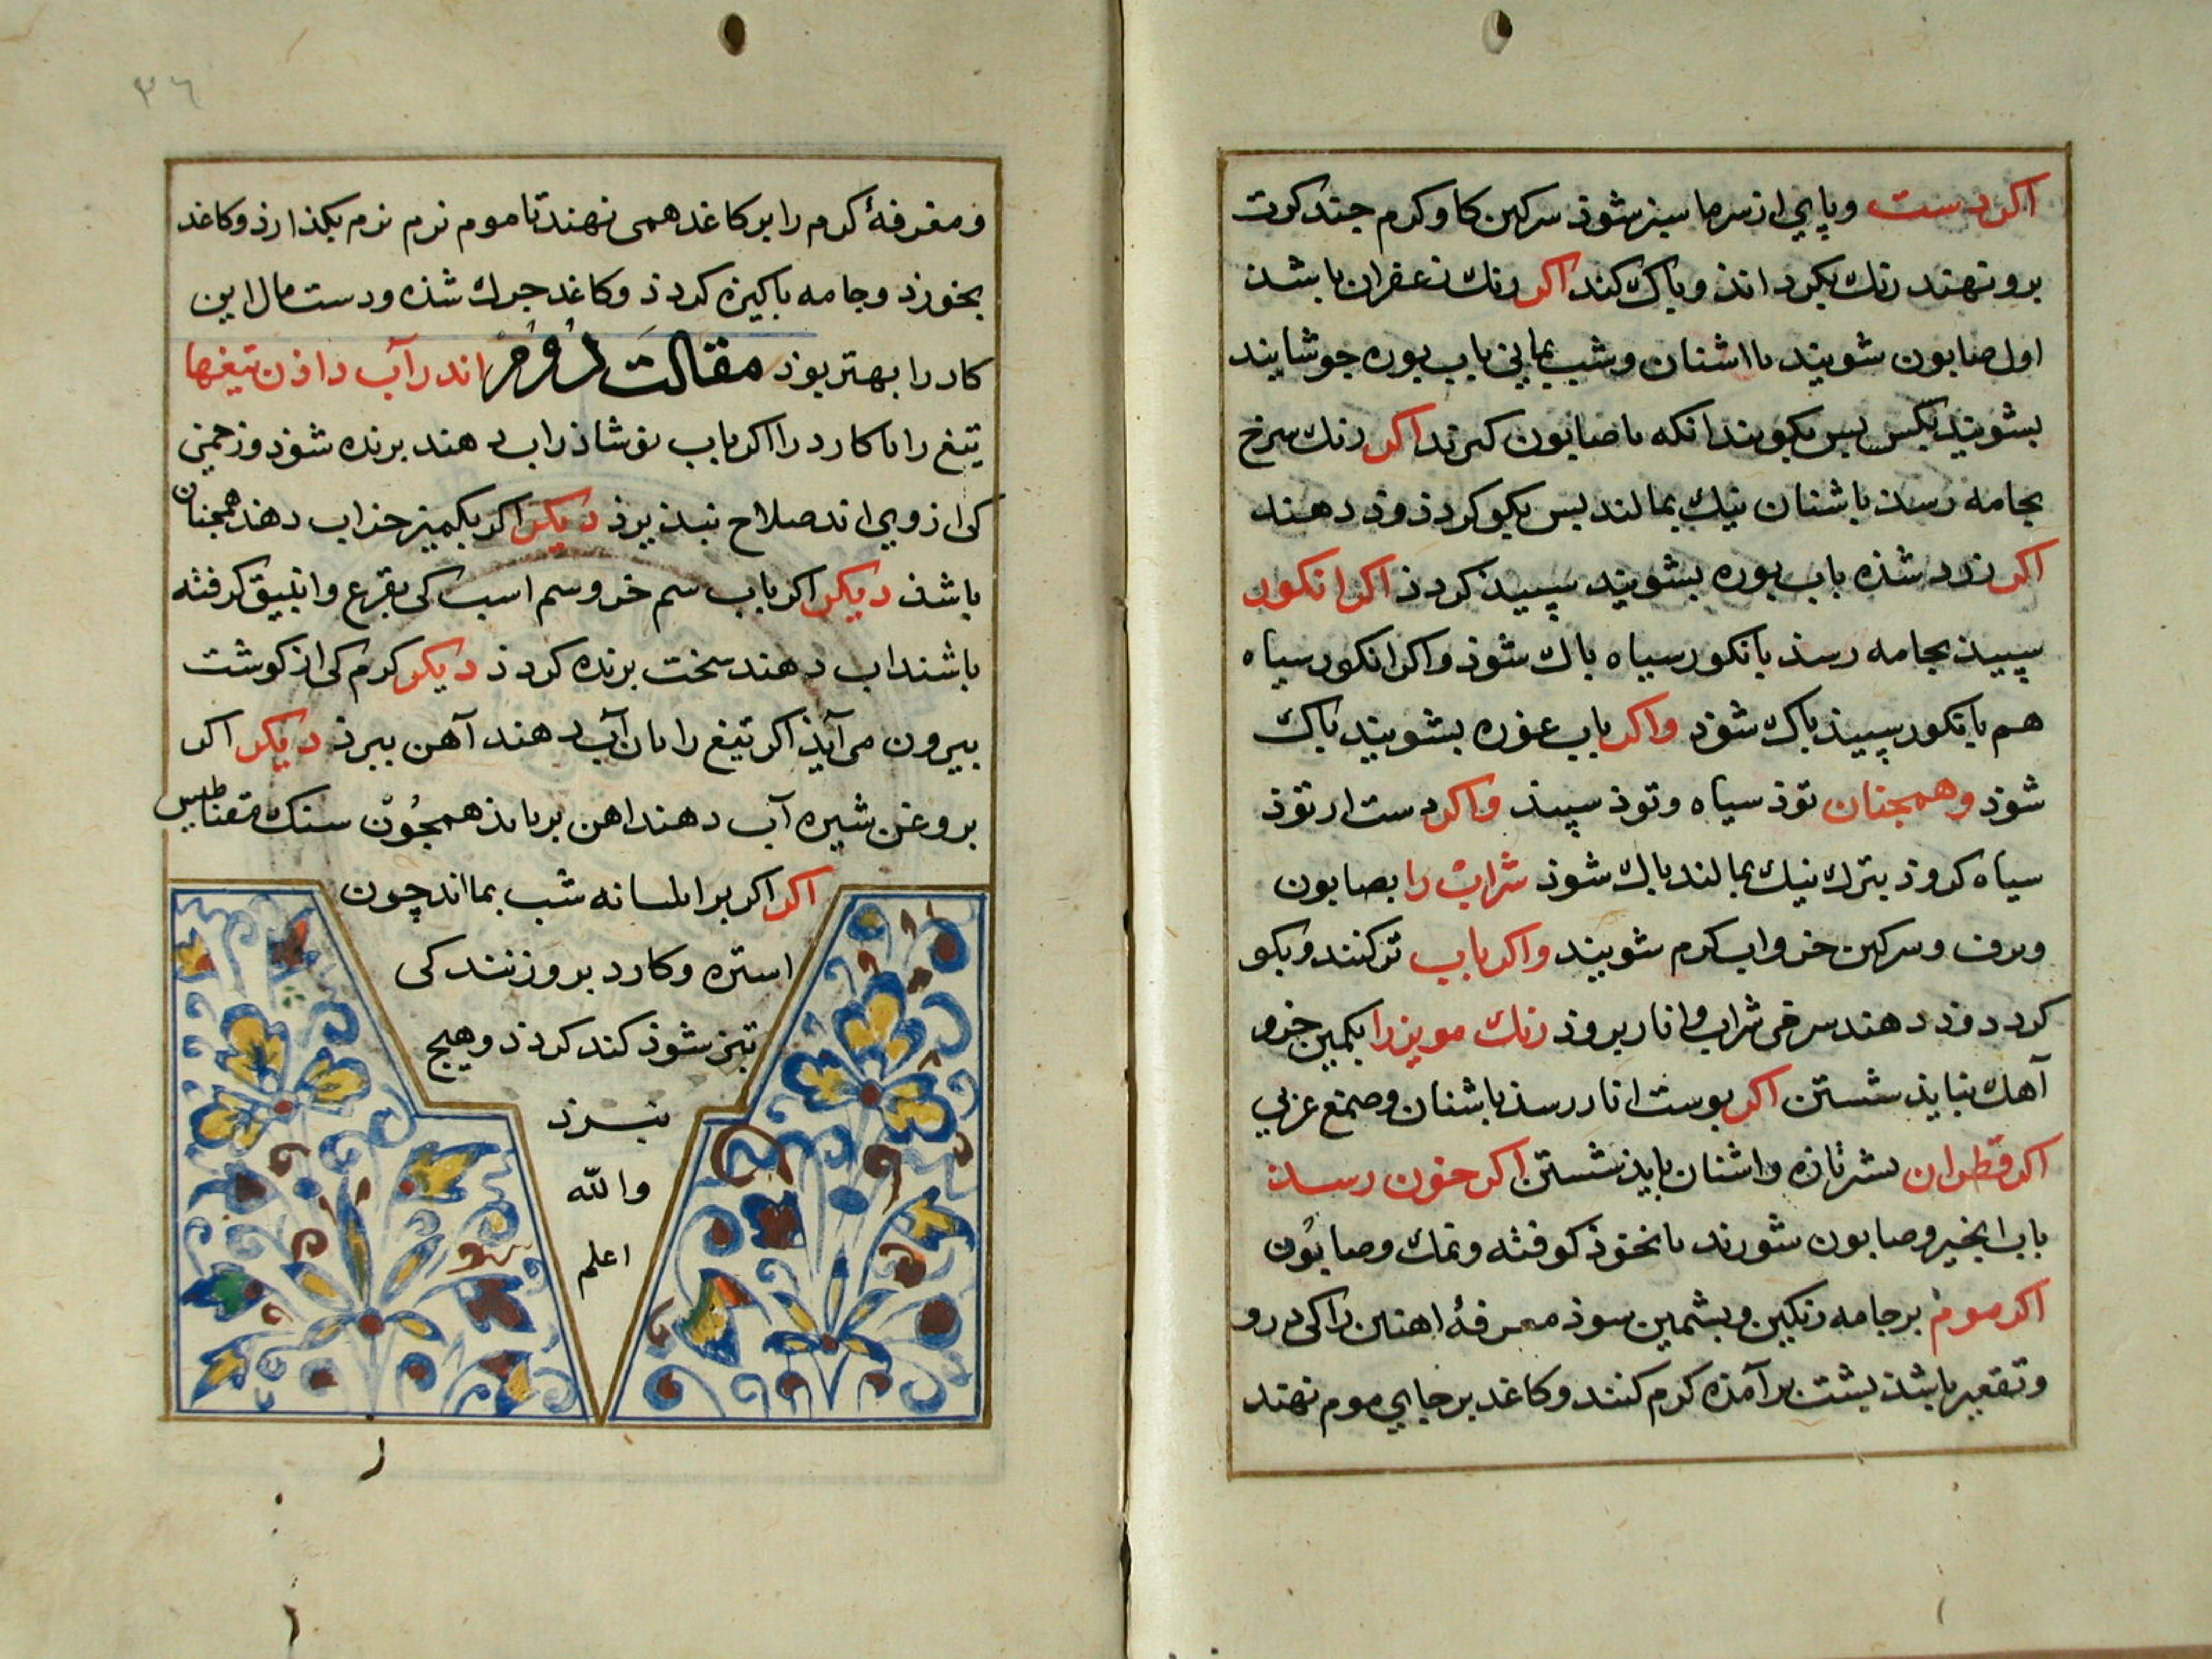 اكر دست وپاي از سرما سبز شوذ سركين كاو كرم چند كرت
برو نهند رنك بكرداند وپاك كند اكر رنك زعفران باشذ
اول صابون شويند با اشنان وشب يماني باب بوره جوشانند
بشويند بكس بس بكويند انكه با صابون كيرند اكر رنك سرخ
بجامه رسذ باشنان نيك بمالند بس بكوكرد ذوذ دهند
اكر زرد شذه باب بوره بشويند سپيذ كردذ اكر انكور
سپيذ بجامه رسذ بانكور سياه باك شوذ واكر انكور سياه
هم بانكور سپيذ باك شوذ واكر باب غوره بشويند باك
شوذ وهمچنان توذ سياه وتوذ سپيذ واكر دست از توذ
سياه كردذ بترك نيك بمالند باك شوذ شراب را بصابون
وبرف وسركين خر واب كرم شويند واكر باب تر كنند وبكو
كرد دوذ دهند سرخى شراب وانار بروذ رنك مويز را بكميز خر و
آهك ببايذ شستن اكر بوست انار رسذ باشنان وصمغ عربي
اكر قطران بشير تازه واشنان بايذ شستن اكر خون رسذ
باب انجير وصابون شورند با نخوذ كوفته ونمك وصابون
اكر موم بر جامه رنكين وبشمين شوذ مغرفهٔ اهنين را كى درو
وتقعير باشذ بشت برآمذه كرم كنند وكاغد بر جاي موم نهند
٣٦
ومغرفهٔ كرم را بر كاغد همى نهند تا موم نرم نرم بكذارذ وكاغد
بخورد وجامه باكيزه كردذ وكاغد چرك شذه ودست مال اين
كار را بهتر بوذ مقالت دوم اندر آب داذن تيغها
تيغ را يا كارد را اكر باب نوشاذر اب دهند برنده شوذ وزخمى
كى از وي ايد صلاح نبذيرذ ديكر اكر بكميز خر اب دهند همچنان
باشذ ديكر اكر باب سم خر وسم اسب كى بقرع وانبيق كرفته
باشند اب دهند سخت برنده كردذ ديكر كرم كى از كوشت
بيرون مى آيذ اكر تيغ را بان آب دهند آهن ببرذ ديكر اكر
بروغن شيره آب دهند اهن بربايذ همچون سنك مقناطيس
اكر اكر بر شب بمااند چون
استره وكارد برو زنند كى
تيز شوذ كند كردذ وهيج
نبرذ
والله
اعلم